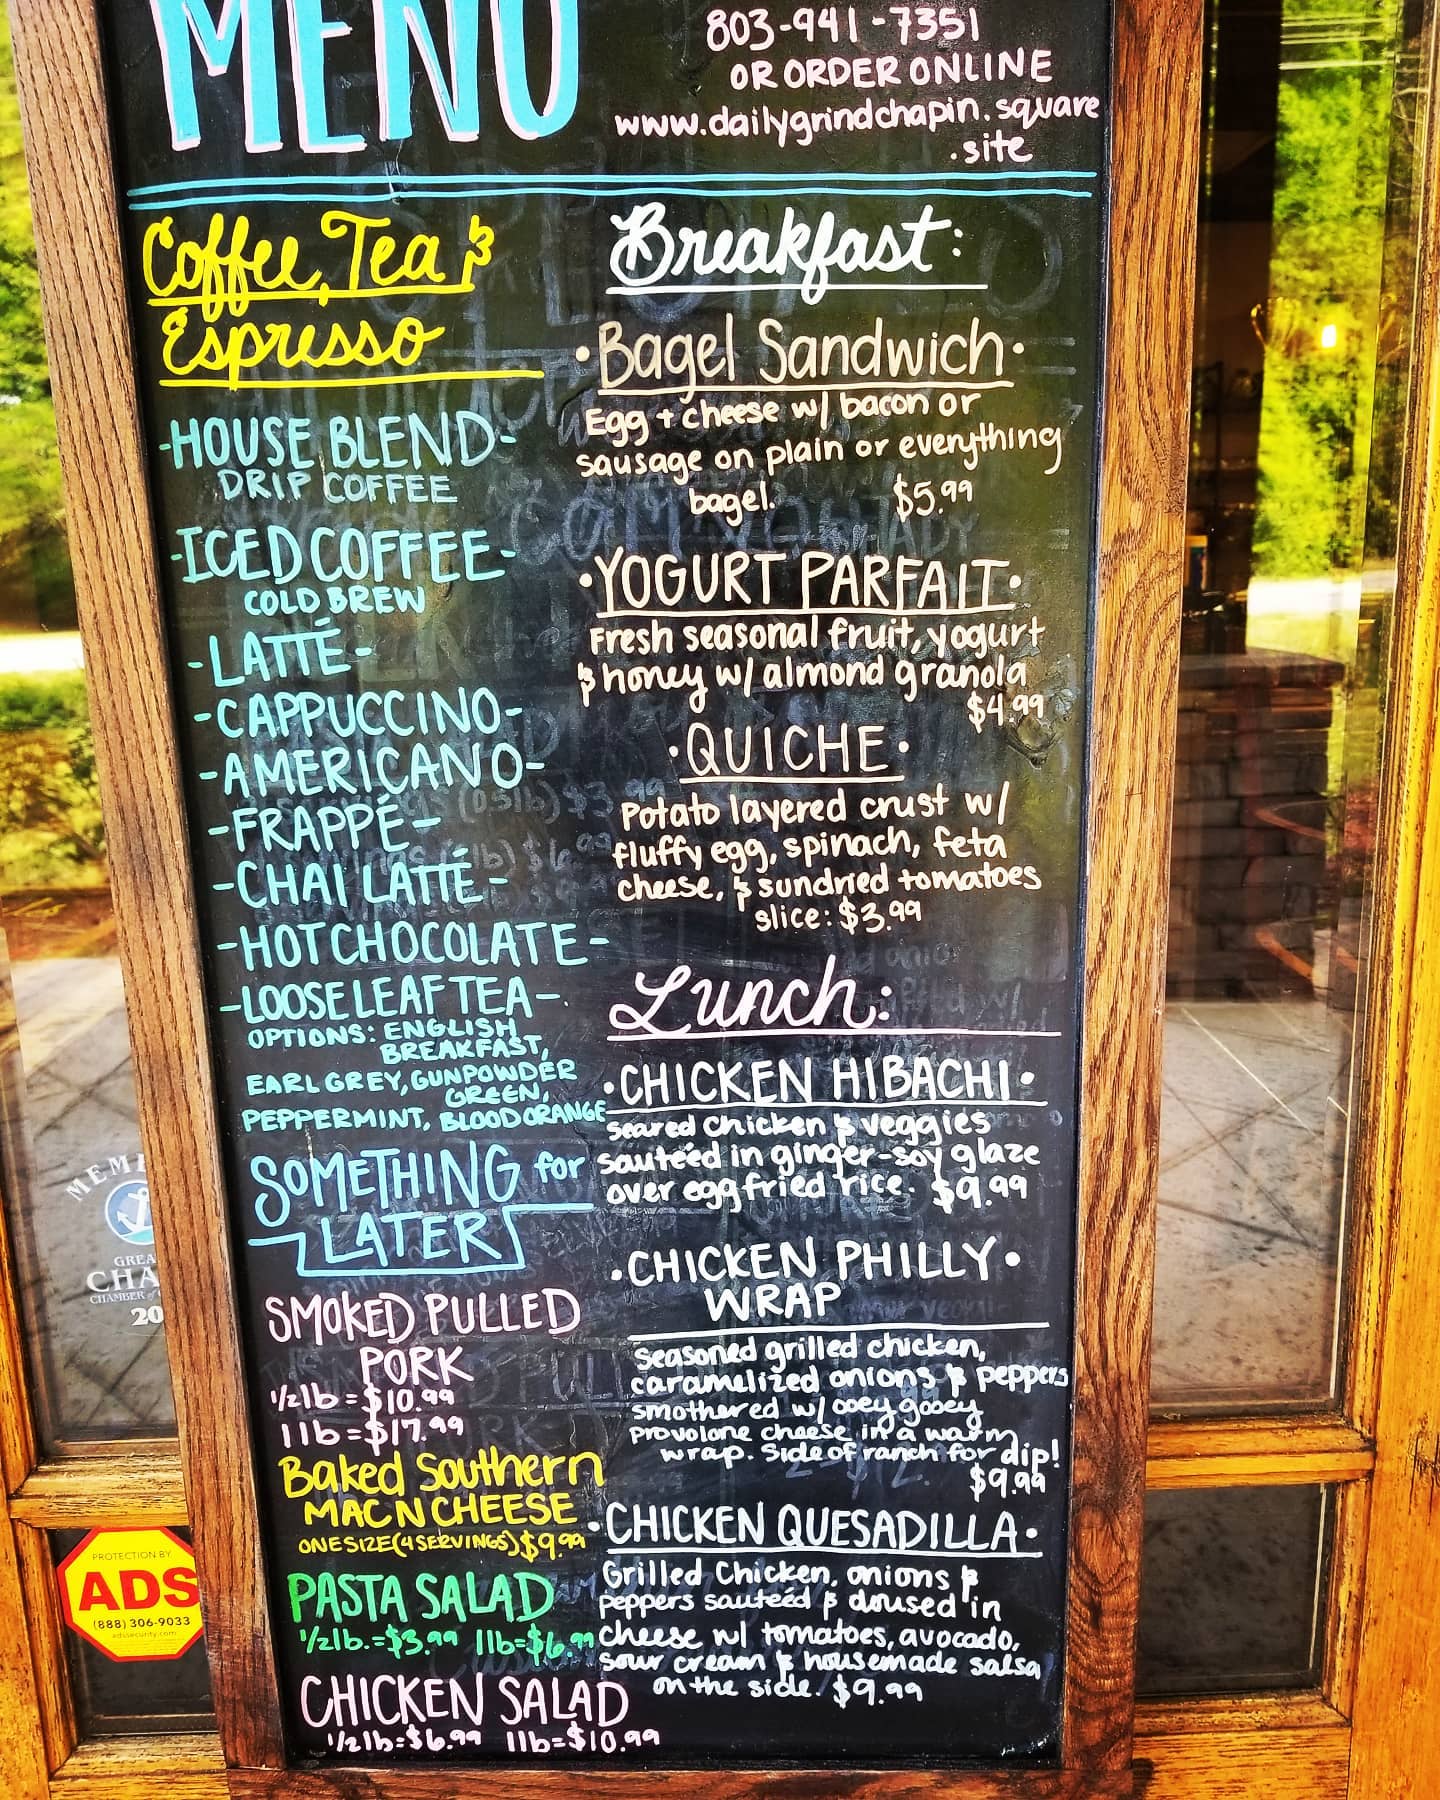 MENU
803-941-7351
OR ORDER ONLINE
www.dailygrindchapin.square
.site
Coffee, Tea &
Espresso
-HOUSE BLEND-
DRIP COFFEE
-ICED COFFEE-
COLD BREW
-LATTÉ-
-CAPPUCCINO-
-AMERICANO-
-FRAPPÉ-
-CHAI LATTÉ-
-HOT CHOCOLATE-
-LOOSE LEAF TEA-
OPTIONS: ENGLISH
BREAKFAST,
EARL GREY, GUNPOWDER
GREEN,
PEPPERMINT, BLOOD ORANGE
SOMETHING for
LATER
SMOKED PULLED
PORK
1/2 lb = $10.99
1 lb = $17.99
Baked Southern
MAC N CHEESE
ONE SIZE (4 SERVINGS) $9.99
PASTA SALAD
1/2 lb. = $3.99 1 lb = $6.99
CHICKEN SALAD
1/2 lb = $6.99 1 lb = $10.99
Breakfast:
•Bagel Sandwich•
Egg + cheese w/ bacon or
sausage on plain or everything
bagel. $5.99
•YOGURT PARFAIT•
Fresh seasonal fruit, yogurt
& honey w/ almond granola
$4.99
•QUICHE•
Potato layered crust w/
fluffy egg, spinach, feta
cheese, & sundried tomatoes
slice: $3.99
Lunch:
•CHICKEN HIBACHI•
seared chicken & veggies
sauteéd in ginger-soy glaze
over egg fried rice. $9.99
•CHICKEN PHILLY•
WRAP
Seasoned grilled chicken,
caramelized onions & peppers
smothered w/ ooey gooey
provolone cheese in a warm
wrap. Side of ranch for dip!
$9.99
•CHICKEN QUESADILLA•
Grilled Chicken, onions &
peppers sauteéd & doused in
cheese w/ tomatoes, avocado,
sour cream & housemade salsa
on the side. $9.99
GREA
CHA
CHAMBER of
20
PROTECTION BY
ADS
(888) 306-9033
adssecurity.com